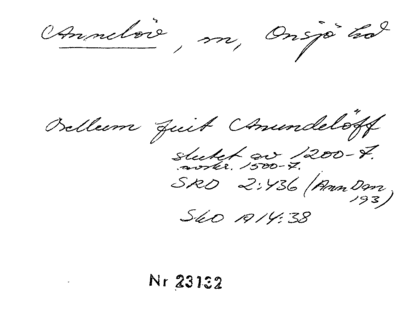 Annelöv, m, Onsjö hd
Bellum fuit Anundelöff
slutet av 1200-t.
avskr. 1500-t.
SRD 2:436 (AnnDan
193)
SkO A14:38
Nr 23132